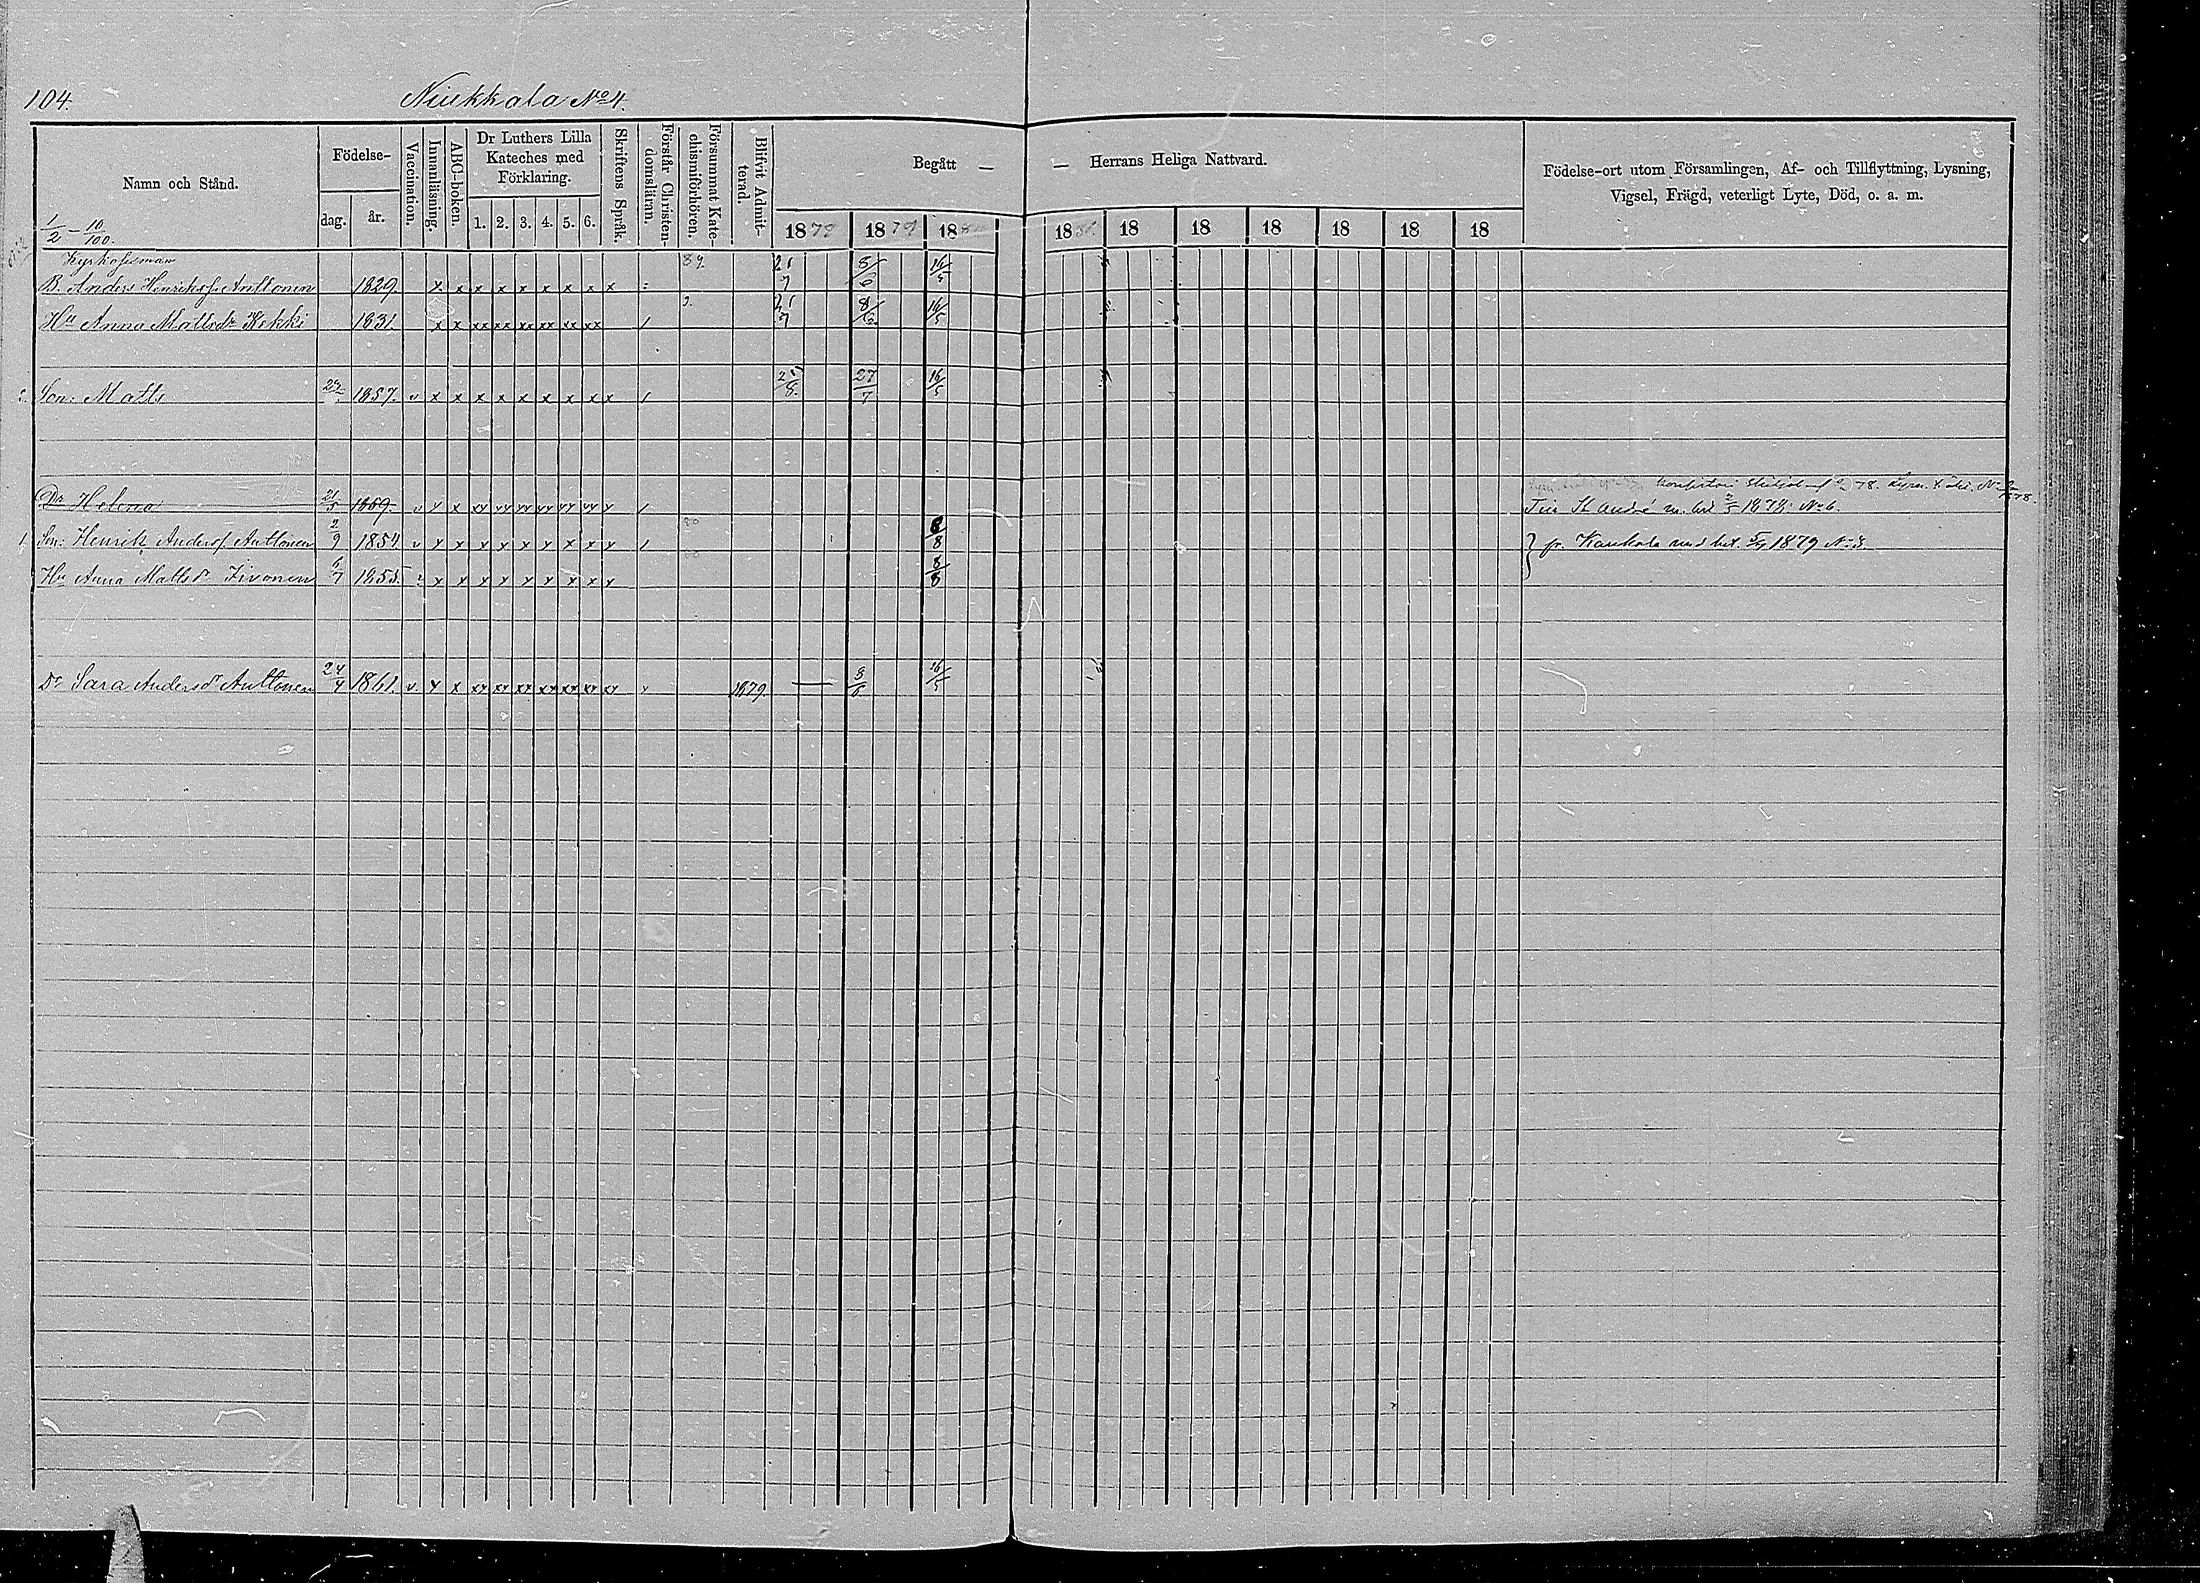 104.
Niukkala No 4.
Namn och Stånd.
Födelse-
dag.
år.
Vaccination.
Innanläsning.
ABC-boken.
Dr Luthers Lilla
Kateches med
Förklaring.
1. 2. 3. 4. 5. 6.
Skriftens Språk.
Förstår Christen-
domsläran.
Försummat Kate-
chismiförhören.
Blifvit Admit-
terad.
Begått —
— Herrans Heliga Nattvard.
1878 1879 1880 1881 18 18 18 18 18 18
Födelse-ort utom Församlingen, Af- och Tillflyttning, Lysning,
Vigsel, Frägd, veterligt Lyte, Död, o. a. m.
1/2 — 10/100.
B. Anders Henrikss. Anttonen 1829. x x x x x x x x x 8/6 16/5
Hu Anna Mattsdr Kekki 1831. x x xx xx xx xx xx xx 16/5
2. Son: Matts 1857. v x x x x x x x x x 27/7 16/5
Dr Helena 21/5 1859 v v x
Till St André m. bet 1878 No 6.
1 Son: Henrik Anderss. Anttonen 2/9 1854 v x x x x x x x x 8/8
fr. Kaukola med bet. 1879 No 3.
Hu Anna Mattsdr Iivonen 6/7 1855. x x x x x x x x x 8/8
Dr Sara Andersdr Anttonen 24/4 1861. v. x x xx xx xx xx xx xx 1879 — 8/6 16/5